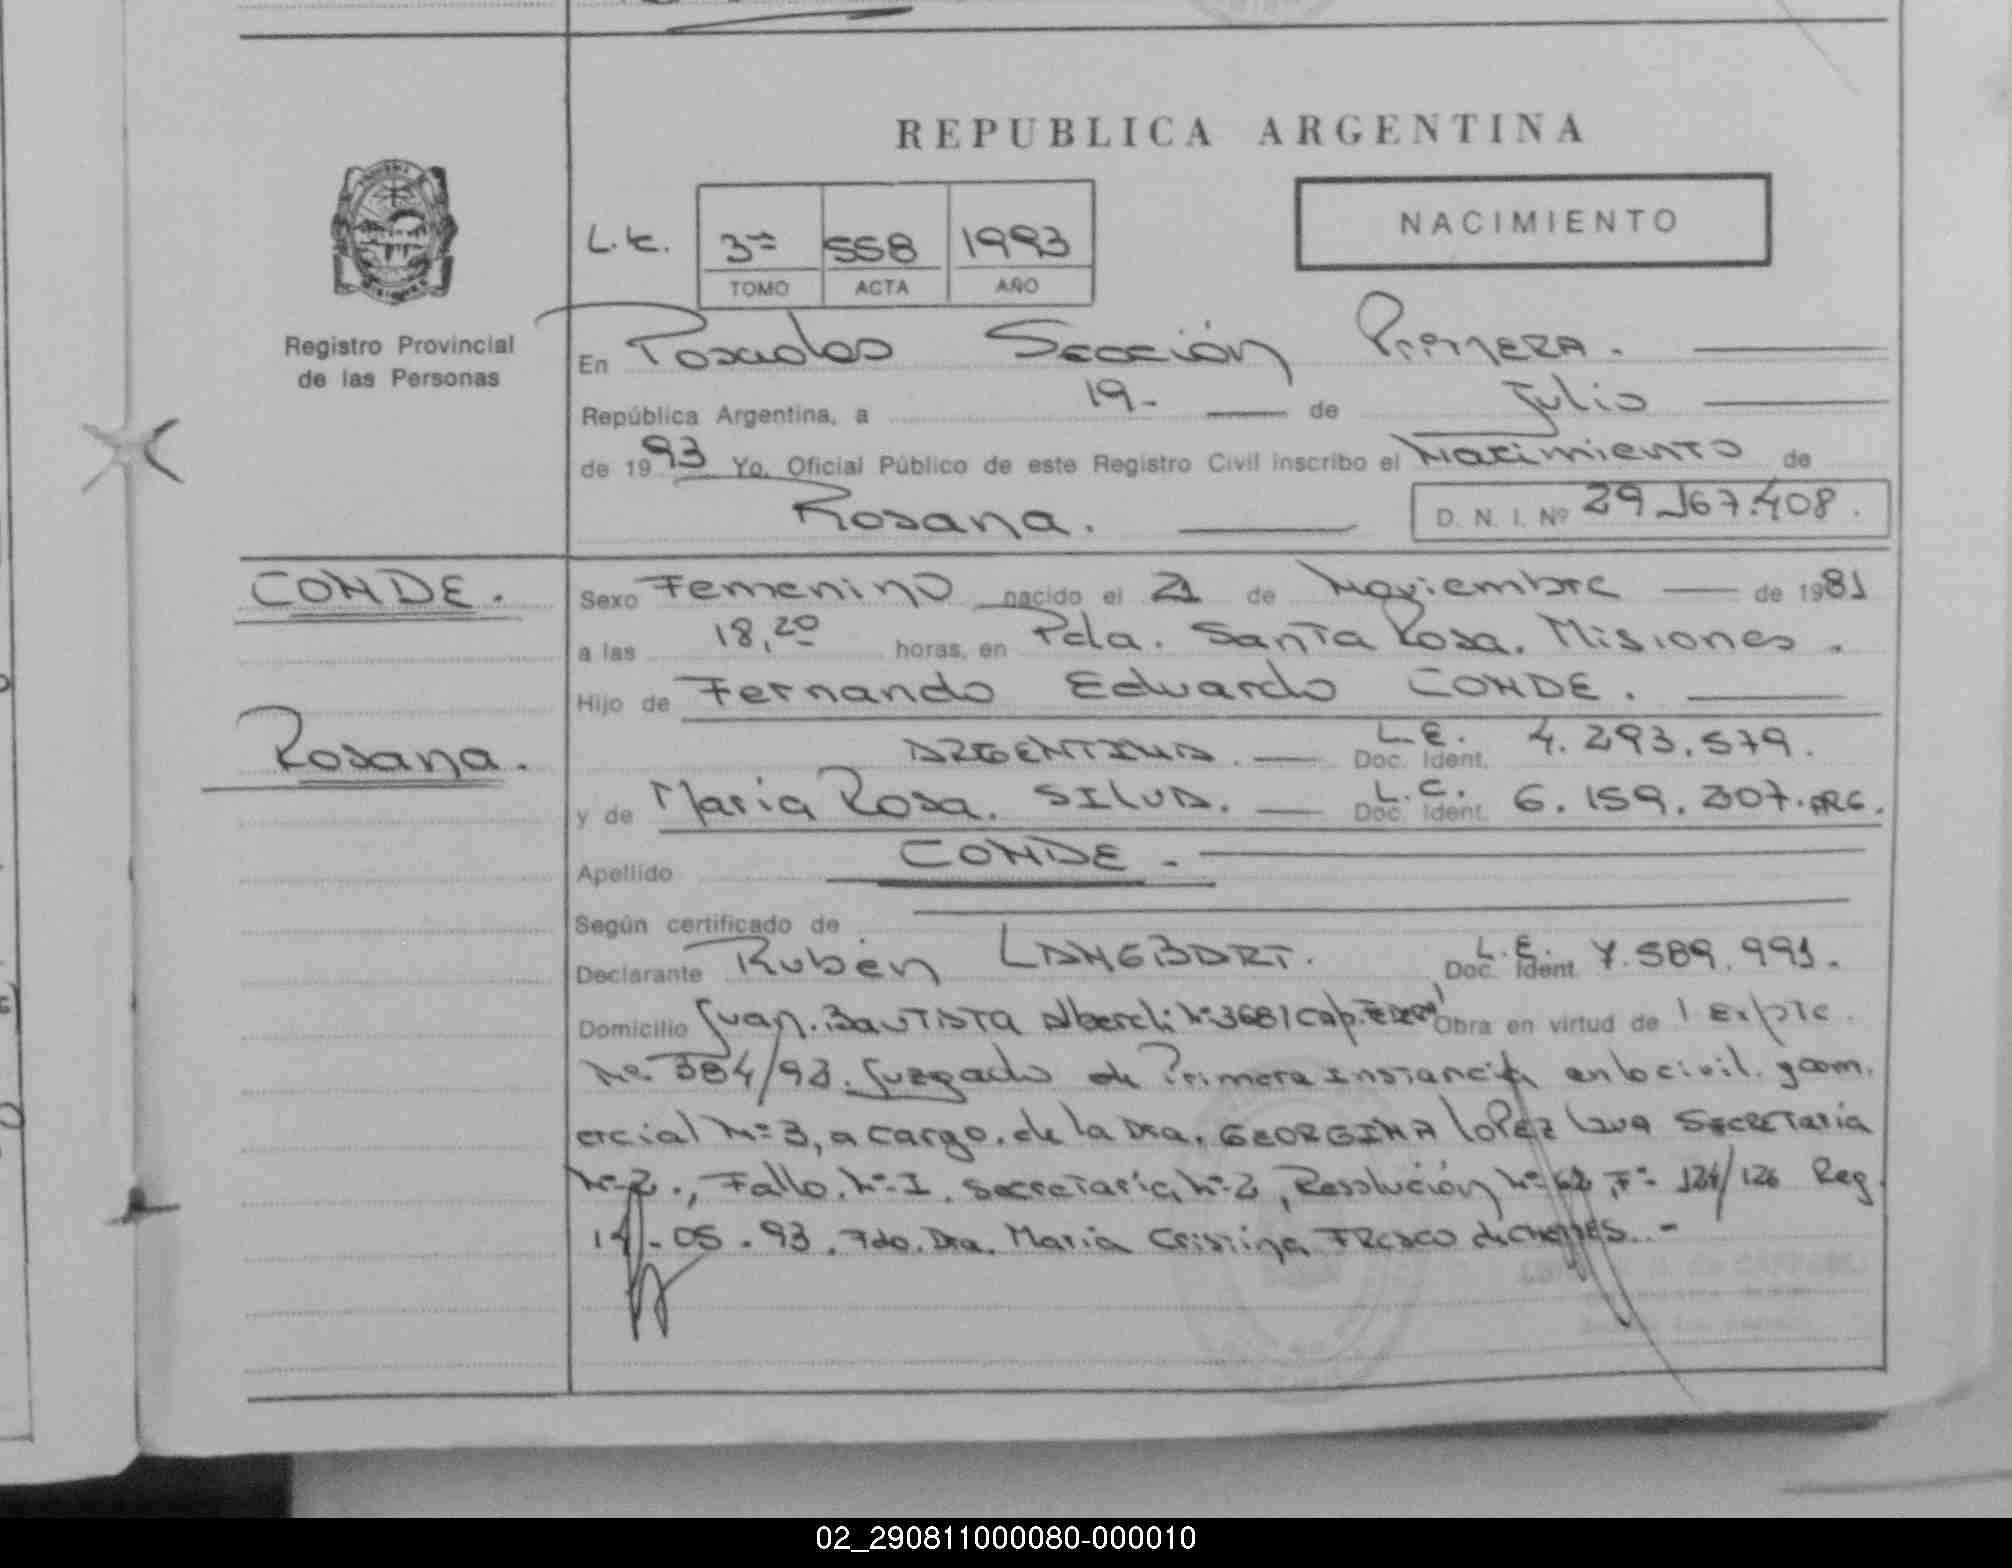 REPUBLICA ARGENTINA
NACIMIENTO
3ª 558 1993
TOMO ACTA AÑO
Registro Provincial
de las Personas
En Posadas Sección Primera.
República Argentina, a 19- de Julio
de 1993 Yo, Oficial Público de este Registro Civil inscribo el Nacimiento de
Rosana. D. N. I. Nº 29.167.408.
CONDE.
Sexo Femenino nacido el 21 de Noviembre de 1981
a las 18,20 horas, en Pcia. Santa Rosa. Misiones.
Hijo de Fernando Eduardo CONDE.
Rosana.
ARGENTINA. L.E. Doc. Ident. 4.293.579.
y de Maria Rosa. SILVA. L.C. Doc. Ident. 6.159.307. ARG.
Apellido CONDE.
Según certificado de
Declarante Rubén LANGBART. L.E. Doc. Ident. 7.589.991.
Domicilio Juan. BAUTISTA Alberdi Nº 3681 Cap. Obra en virtud de Expte.
Nº 384/93. Juzgado de Primera Instancia en lo civil. y com.
ercial Nº 3, a cargo. de la Dra. GEORGINA LOPEZ Secretaria
Nº 2., Fallo. Nº I. Secretaria Nº 2, Resolución Nº 62, Fº 124/126 Reg.
14-05.93. Fdo. Dra. Maria Cristina FRESCO de
02_290811000080-000010